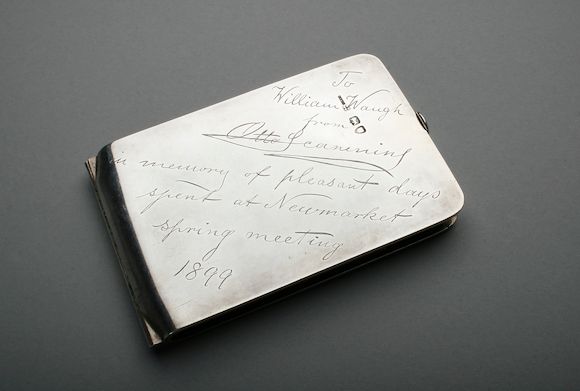 To
William Waugh
from
Otto Scanning
in memory of pleasant days
spent at Newmarket
spring meeting
1899